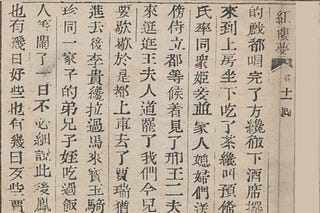 紅樓夢 十一回
的戲都唱完了方纔徹下酒席擺
來到上房坐下吃了茶纔叫預備
氏率同衆姬妾並家人媳婦們送
傍侍立都等候着見了邢王二夫
來逛逛王夫人道罷了我們今兒
要歇歇於是都上車去了賈瑞猶
進去後李貴纔拉過馬來寶玉騎
珍同一家子的弟兄子姪吃過飯
人等鬧了一日不必細說此後鳳
也有幾日好些也有幾日歹些賈